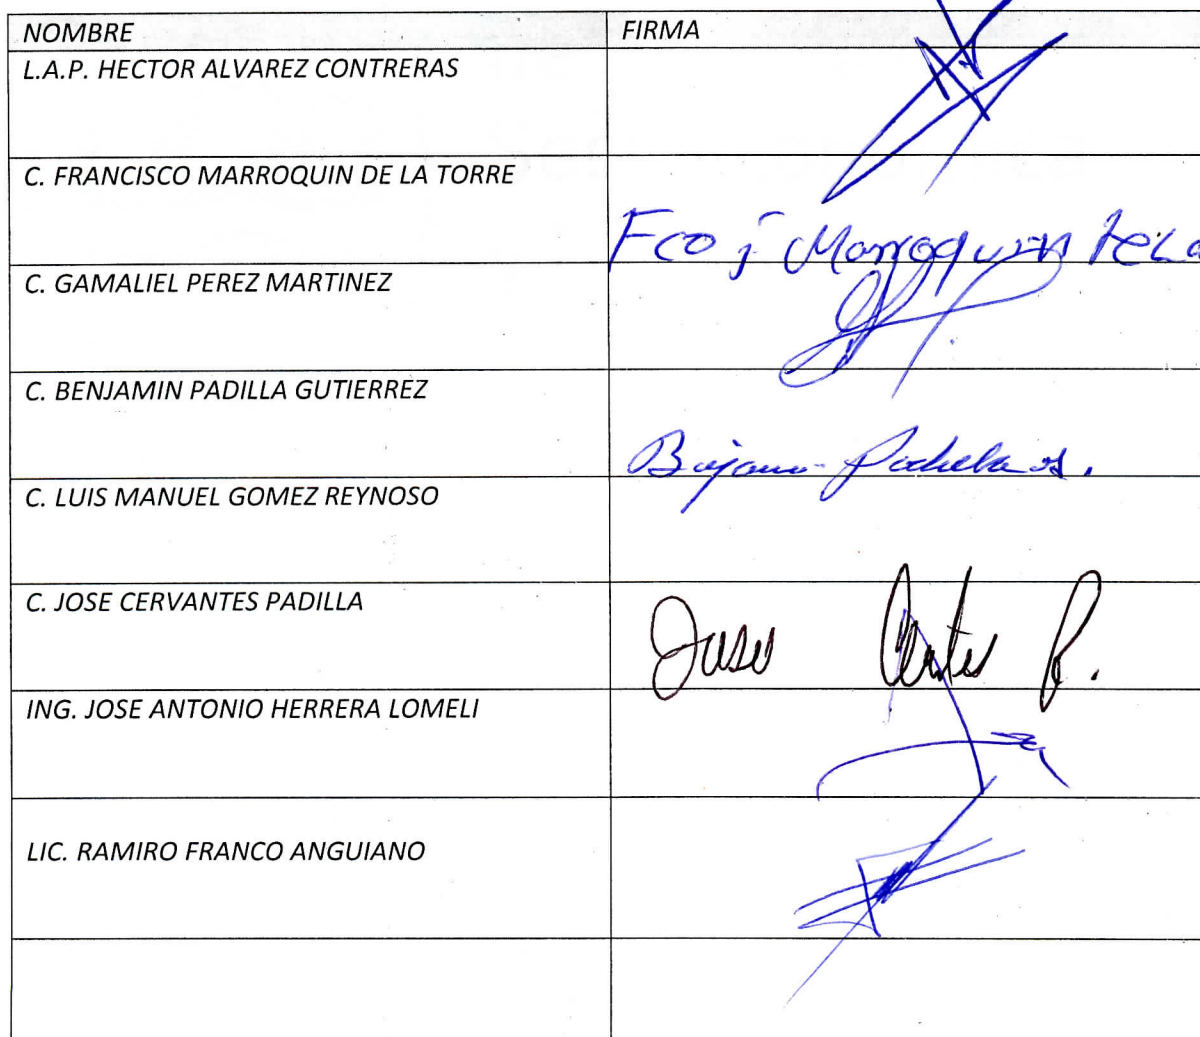 NOMBRE FIRMA
L.A.P. HECTOR ALVAREZ CONTRERAS
C. FRANCISCO MARROQUIN DE LA TORRE
Fco j Marroquin
C. GAMALIEL PEREZ MARTINEZ
C. BENJAMIN PADILLA GUTIERREZ
C. LUIS MANUEL GOMEZ REYNOSO
C. JOSE CERVANTES PADILLA
Jose P.
ING. JOSE ANTONIO HERRERA LOMELI
LIC. RAMIRO FRANCO ANGUIANO